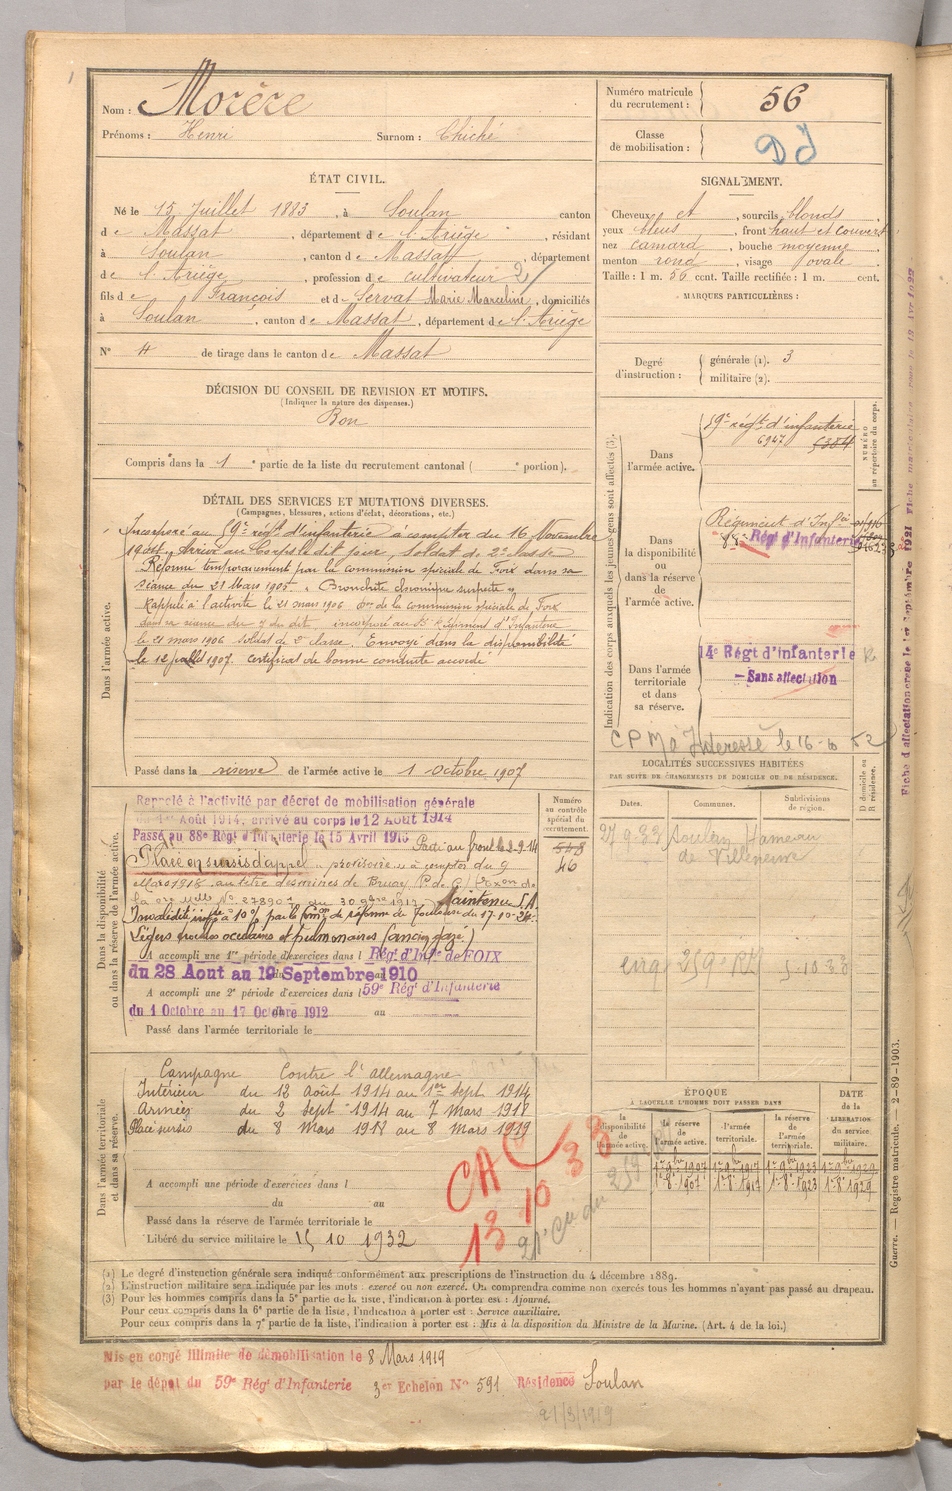 Nom : Morère
Prénoms : Henri Surnom : Chiché
Numéro matricule du recrutement : 56
Classe de mobilisation :
ÉTAT CIVIL.
Né le 15 Juillet 1883, à Soulan canton
de Massat, département de l'Ariège, résidant
à Soulan, canton de Massat, département
de l'Ariège, profession de cultivateur
fils de François et de Servat Marie Marceline, domiciliés
à Soulan, canton de Massat, département de l'Ariège
N° 4 de tirage dans le canton de Massat
SIGNALEMENT.
Cheveux et, sourcils blonds,
yeux bleus, front haut et couvert
nez camard, bouche moyenne
menton rond, visage ovale.
Taille : 1 m. 56 cent. Taille rectifiée : 1 m. cent.
MARQUES PARTICULIÈRES :
Degré d'instruction : générale (1). 3
militaire (2).
DÉCISION DU CONSEIL DE REVISION ET MOTIFS.
(Indiquer la nature des dispenses.)
Bon
Compris dans la 1e partie de la liste du recrutement cantonal ( e portion).
DÉTAIL DES SERVICES ET MUTATIONS DIVERSES.
(Campagnes, blessures, actions d'éclat, décorations, etc.)
Dans l'armée active.
Incorporé au 59e régt d'infanterie à compter du 16 Novembre
1904, Arrivé au Corps le dit jour, Soldat de 2e classe
Réformé temporairement par la commission spéciale de Foix dans sa
séance du 21 Mars 1905. « Bronchite chronique suspecte »
Rappelé à l'activité le 21 mars 1906 de la commission spéciale de Foix
dans sa séance du 7 du dit, incorporé au Régiment d'Infanterie
le 21 mars 1906 soldat de 2e classe. Envoyé dans la disponibilité
le 12 juillet 1907. Certificat de bonne conduite accordé
Passé dans la réserve de l'armée active le 1 octobre 1907
Indication des corps auxquels les jeunes gens sont affectés (3).
NUMÉRO au répertoire du corps.
Dans l'armée active.
59e régt d'infanterie
6947 5384
Dans la disponibilité ou dans la réserve de l'armée active.
Régiment d'Infie
88e Régt d'Infanterie
Dans l'armée territoriale et dans sa réserve.
14e Régt d'Infanterie
Sans affectation
LOCALITÉS SUCCESSIVES HABITÉES
PAR SUITE DE CHANGEMENTS DE DOMICILE OU DE RÉSIDENCE.
Dates. Communes. Subdivisions de région. D domicile ou R résidence.
27 9 33 Soulan Hameau
de Villeneuve
Dans la disponibilité ou dans la réserve de l'armée active.
Numéro au contrôle spécial du recrutement.
46
Rappelé à l'activité par décret de mobilisation générale
du 1er Août 1914, arrivé au corps le 12 Août 1914
Passé au 88e Régt d'Infanterie le 15 Avril 1915
Placé en sursis d'appel provisoire à compter du 9
Mars 1918 au titre des mines de Bruay
Maintenu S.A.
Légers troubles oculaires et pulmonaires (ancien gazé)
A accompli une 1re période d'exercices dans l Régt d'Infie de FOIX
du 28 Aout au 19 Septembre 1910
A accompli une 2e période d'exercices dans l 59e Régt d'Infanterie
du 1 Octobre au 17 Octobre 1912 au
Passé dans l'armée territoriale le
Dans l'armée territoriale et dans sa réserve.
Campagne Contre l'allemagne
Intérieur du 12 Août 1914 au 1er Sept 1914
Armées du 2 Sept 1914 au 7 Mars 1918
Placé sursis du 8 Mars 1918 au 8 Mars 1919
A accompli une période d'exercices dans l
du au
Passé dans la réserve de l'armée territoriale le
Libéré du service militaire le 15 10 1932
ÉPOQUE
A LAQUELLE L'HOMME DOIT PASSER DANS
la disponibilité de l'armée active. la réserve de l'armée active. l'armée territoriale. la réserve de l'armée territoriale.
DATE de la LIBÉRATION du service militaire.
1er 8bre 1907 1er 8bre 1917 1er 8bre 1923 1er 8bre 1929
CA
13 10 38
(1) Le degré d'instruction générale sera indiqué conformément aux prescriptions de l'instruction du 4 décembre 1889.
(2) L'instruction militaire sera indiquée par les mots : exercé ou non exercé. On comprendra comme non exercés tous les hommes n'ayant pas passé au drapeau.
(3) Pour les hommes compris dans la 5e partie de la liste, l'indication à porter est : Ajourné.
Pour ceux compris dans la 6e partie de la liste, l'indication à porter est : Service auxiliaire.
Pour ceux compris dans la 7e partie de la liste, l'indication à porter est : Mis à la disposition du Ministre de la Marine. (Art. 4 de la loi.)
Guerre. — Registre matricule. — 2-89-1903.
Mis en congé illimité de démobilisation le 8 Mars 1919
par le dépot du 59e Régt d'Infanterie 3er Echelon No 591 Résidence Soulan
21/3/1919